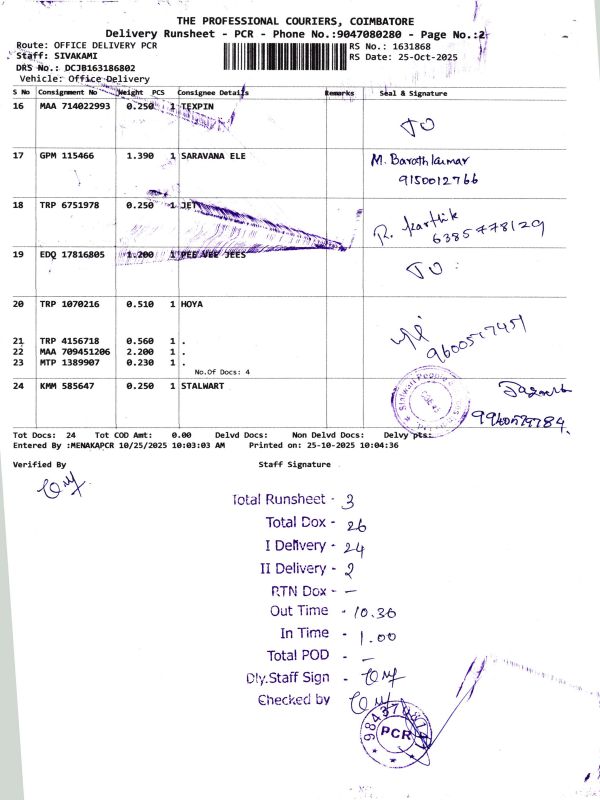 THE PROFESSIONAL COURIERS, COIMBATORE
Delivery Runsheet - PCR - Phone No.:9047080280 - Page No.:2
Route: OFFICE DELIVERY PCR
RS No.: 1631868
Staff: SIVAKAMI
RS Date: 25-Oct-2025
DRS No.: DCJB163186802
Vehicle: Office Delivery
S No Consignment No Weight PCS Consignee Details Remarks Seal & Signature
16 MAA 714022993 0.250 1 TEXPIN
17 GPM 115466 1.390 1 SARAVANA ELE M. Barath kumar
9150012766
18 TRP 6751978 0.250 1 JET R. karthik
6385778129
19 EDQ 17816805 1.200 1 PEE VEE JEES
20 TRP 1070216 0.510 1 HOYA
9600517451
21 TRP 4156718 0.560 1 .
22 MAA 709451206 2.200 1 .
23 MTP 1389907 0.230 1 .
No.Of Docs: 4
24 KMM 585647 0.250 1 STALWART
Tot Docs: 24 Tot COD Amt: 0.00 Delvd Docs: Non Delvd Docs: Delvy pts:
Entered By :MENAKAPCR 10/25/2025 10:03:03 AM Printed on: 25-10-2025 10:04:36
Verified By Staff Signature
Total Runsheet - 3
Total Dox - 26
I Delivery - 24
II Delivery - 2
RTN Dox - -
Out Time - 10.30
In Time - 1.00
Total POD - -
Dly.Staff Sign -
Checked by
PCR